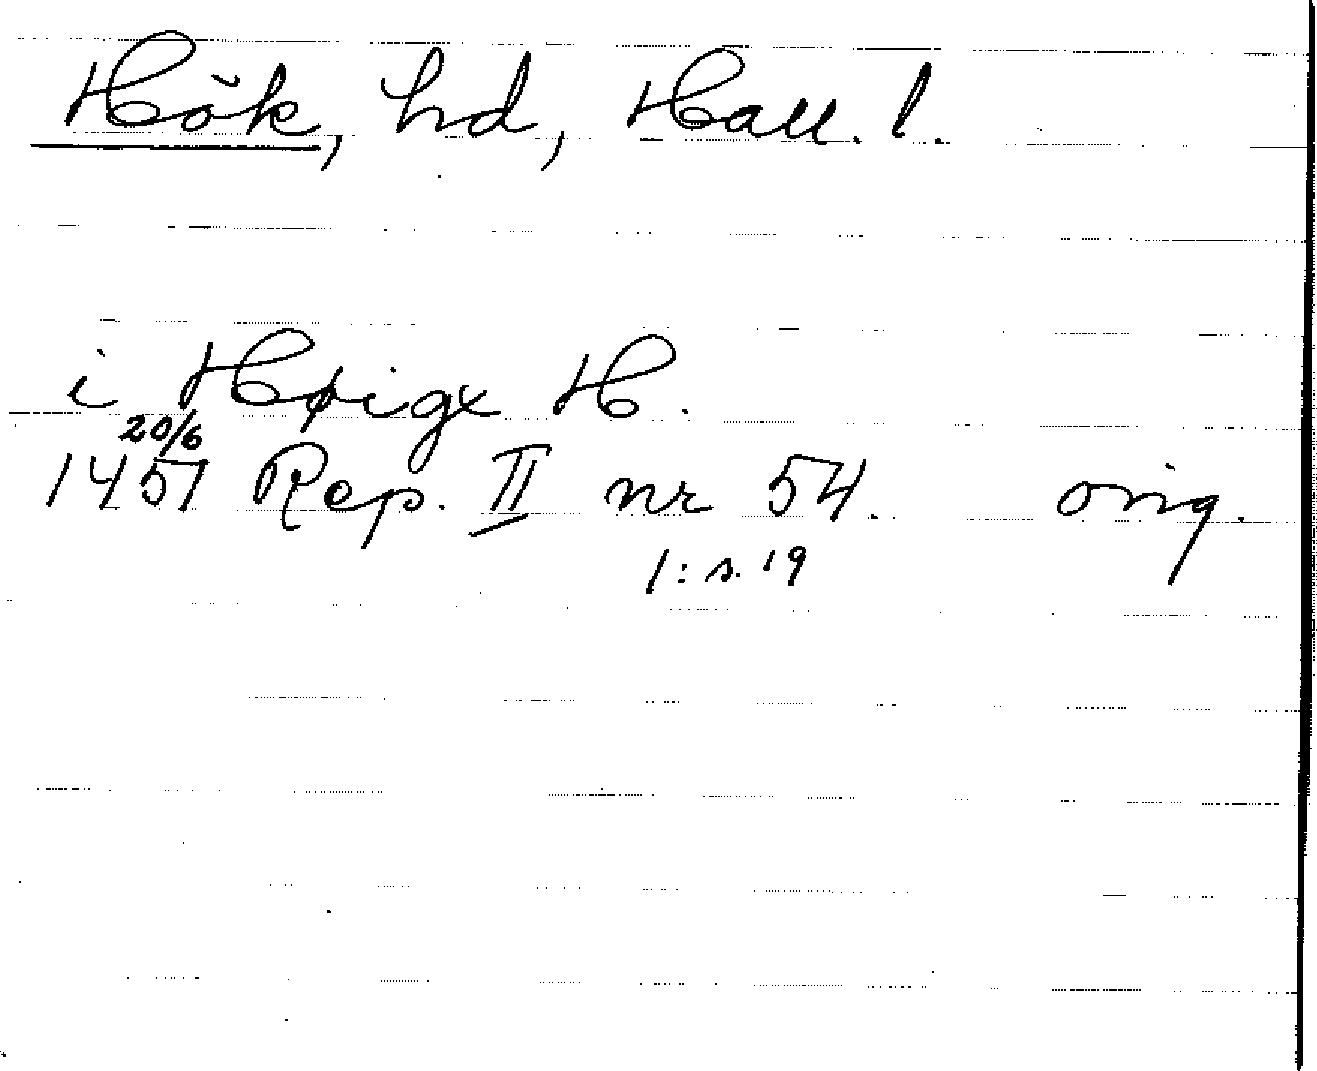 Hök, hd, Hall. l.
i Høigx H.
20/6
1457 Rep. II nr 54. orig.
1: s. 19